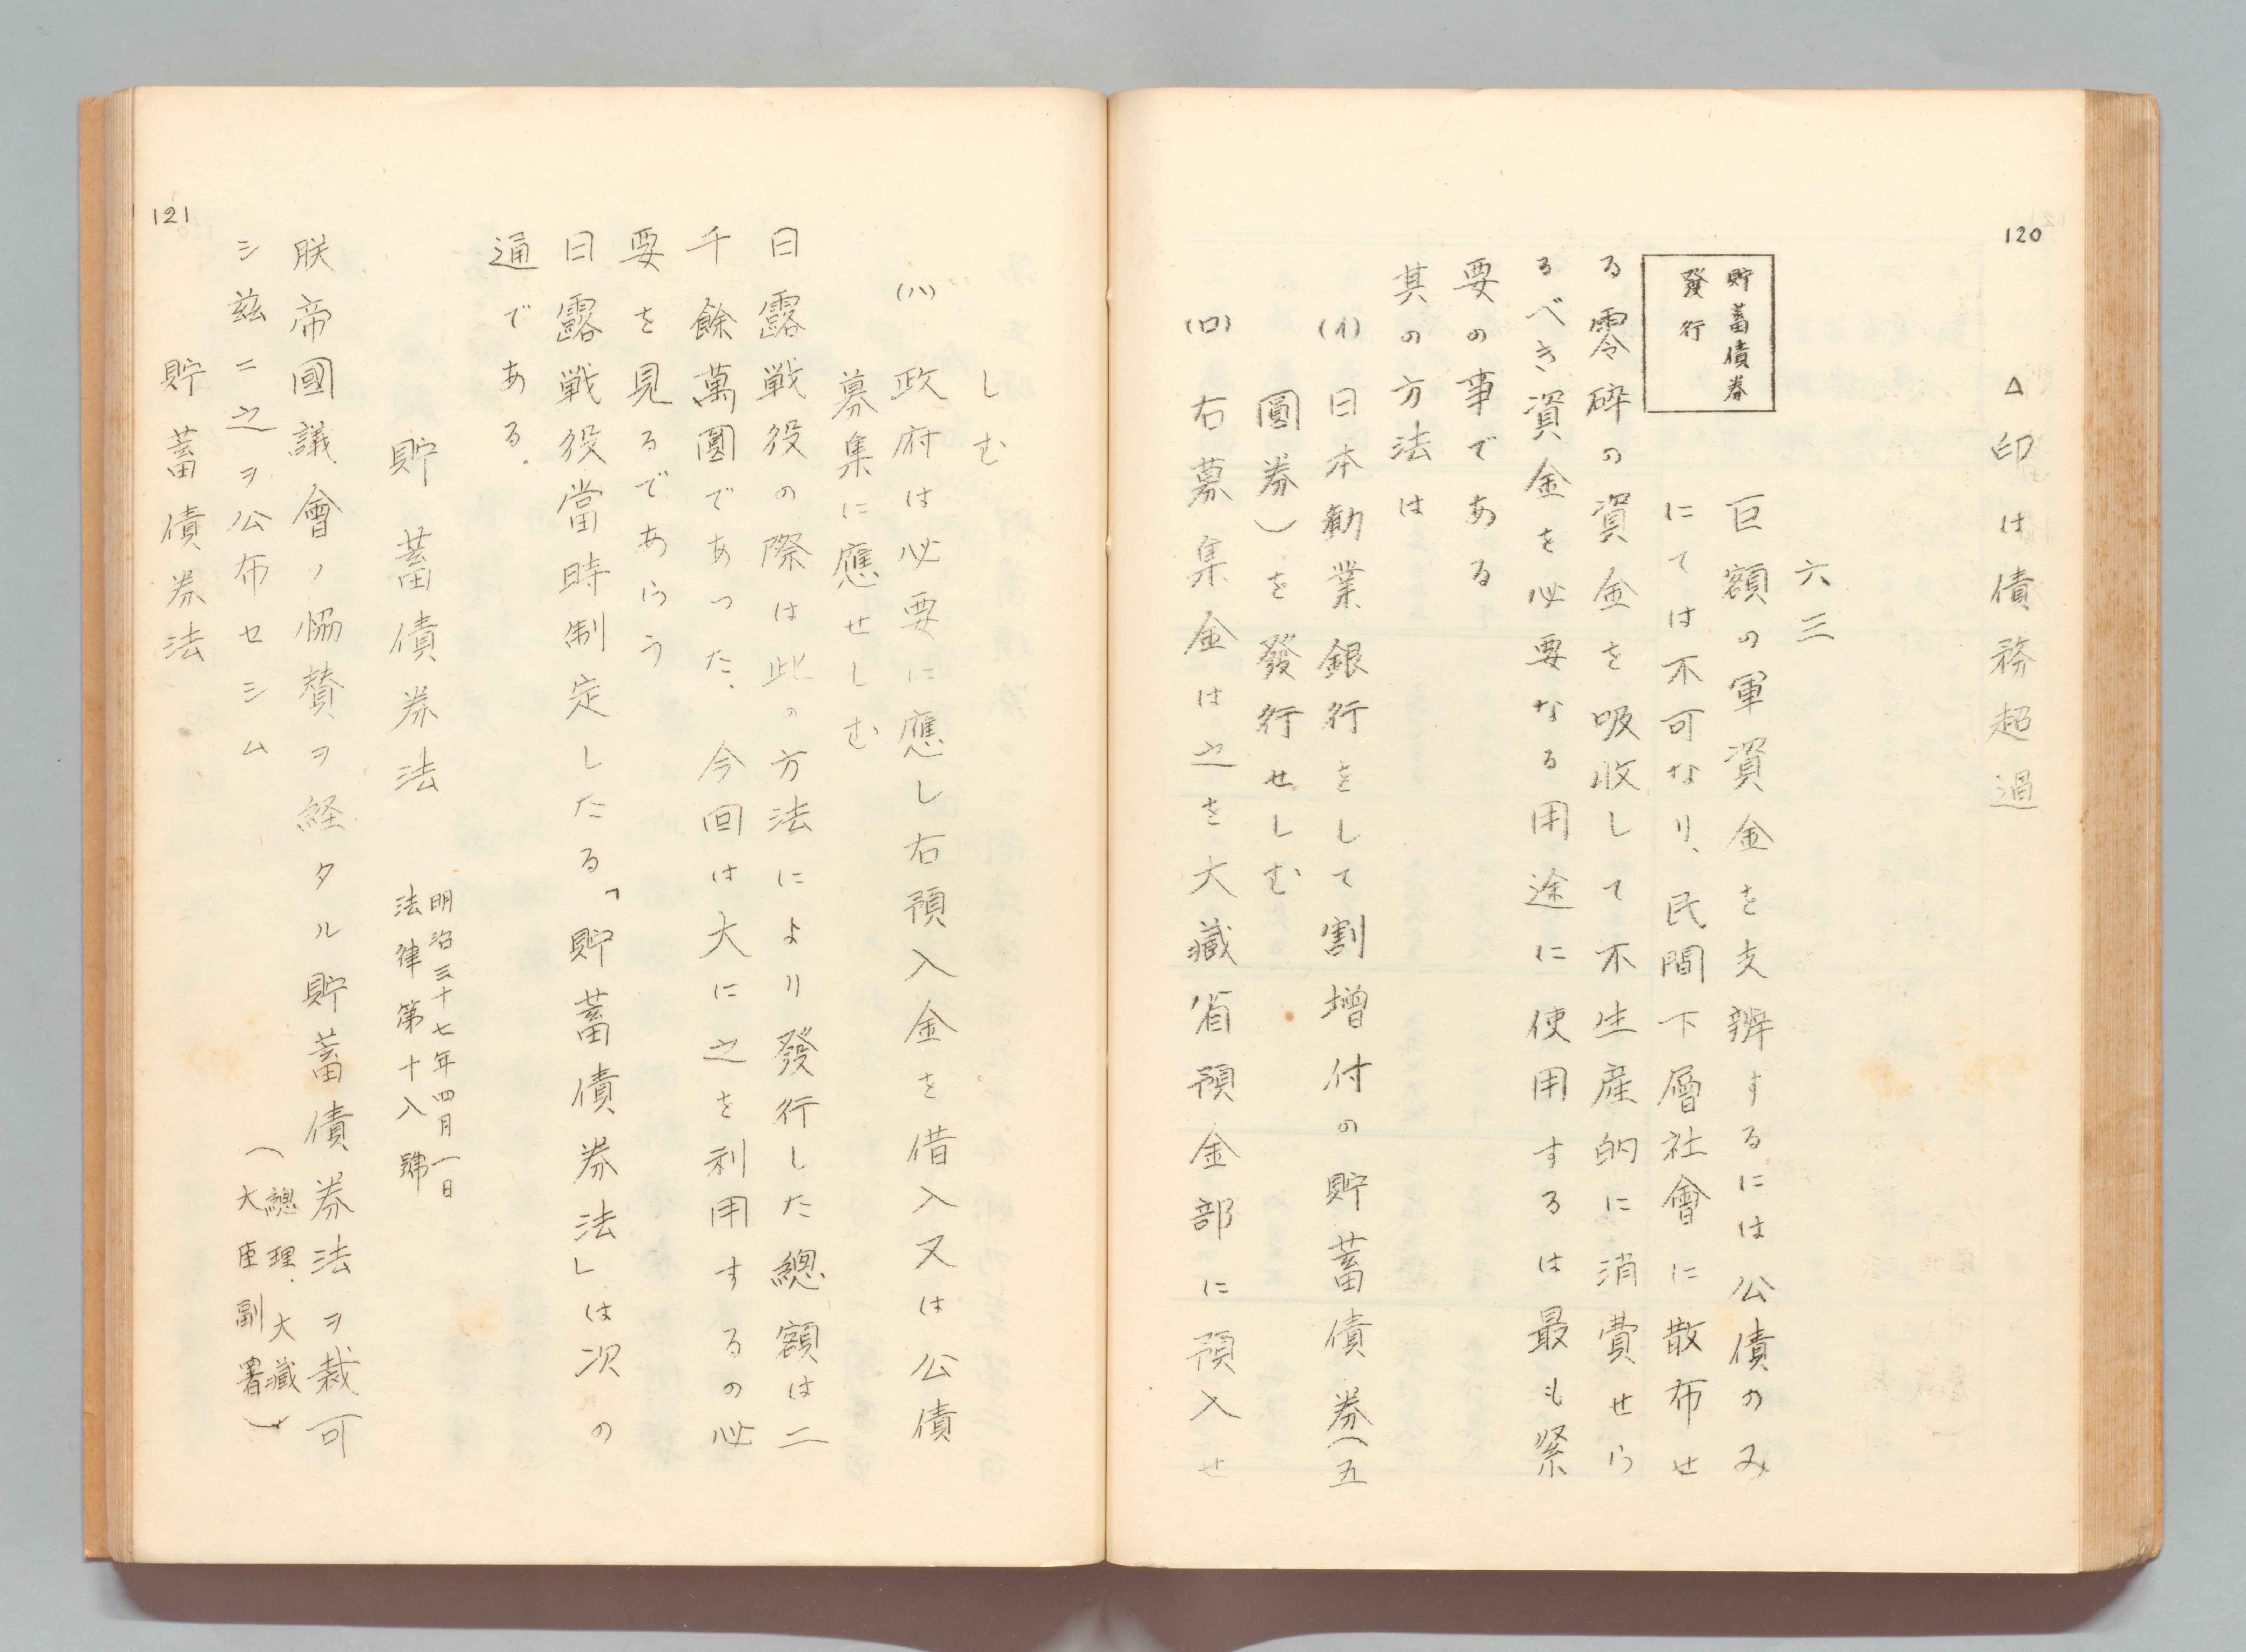 120
△印は債務超過
六三
貯蓄債券
發行
巨額の軍資金を支辨するには公債のみ
にては不可なり、民間下層社會に散布せ
る零碎の資金を吸收して不生産的に消費せら
るべき資金を必要なる用途に使用するは最も緊
要の事である
其の方法は
(イ)日本勧業銀行をして割増付の貯蓄債券(五
圓券)を發行せしむ
(ロ)右募集金は之を大藏省預金部に預入せ
しむ
(ハ)政府は必要に應し右預入金を借入又は公債
募集に應せしむ
日露戦役の際は此の方法により發行した總額は二
千餘萬圓であつた、今回は大に之を利用するの必
要を見るであらう
日露戦役當時制定したる「貯蓄債券法」は次の
通である.
貯蓄債券法
明治三十七年四月一日
法律第十八號
朕帝國議會ノ協賛ヲ経タル貯蓄債券法ヲ裁可
シ茲ニ之ヲ公布セシム
(總理、大藏
大臣副署)
貯蓄債券法
121